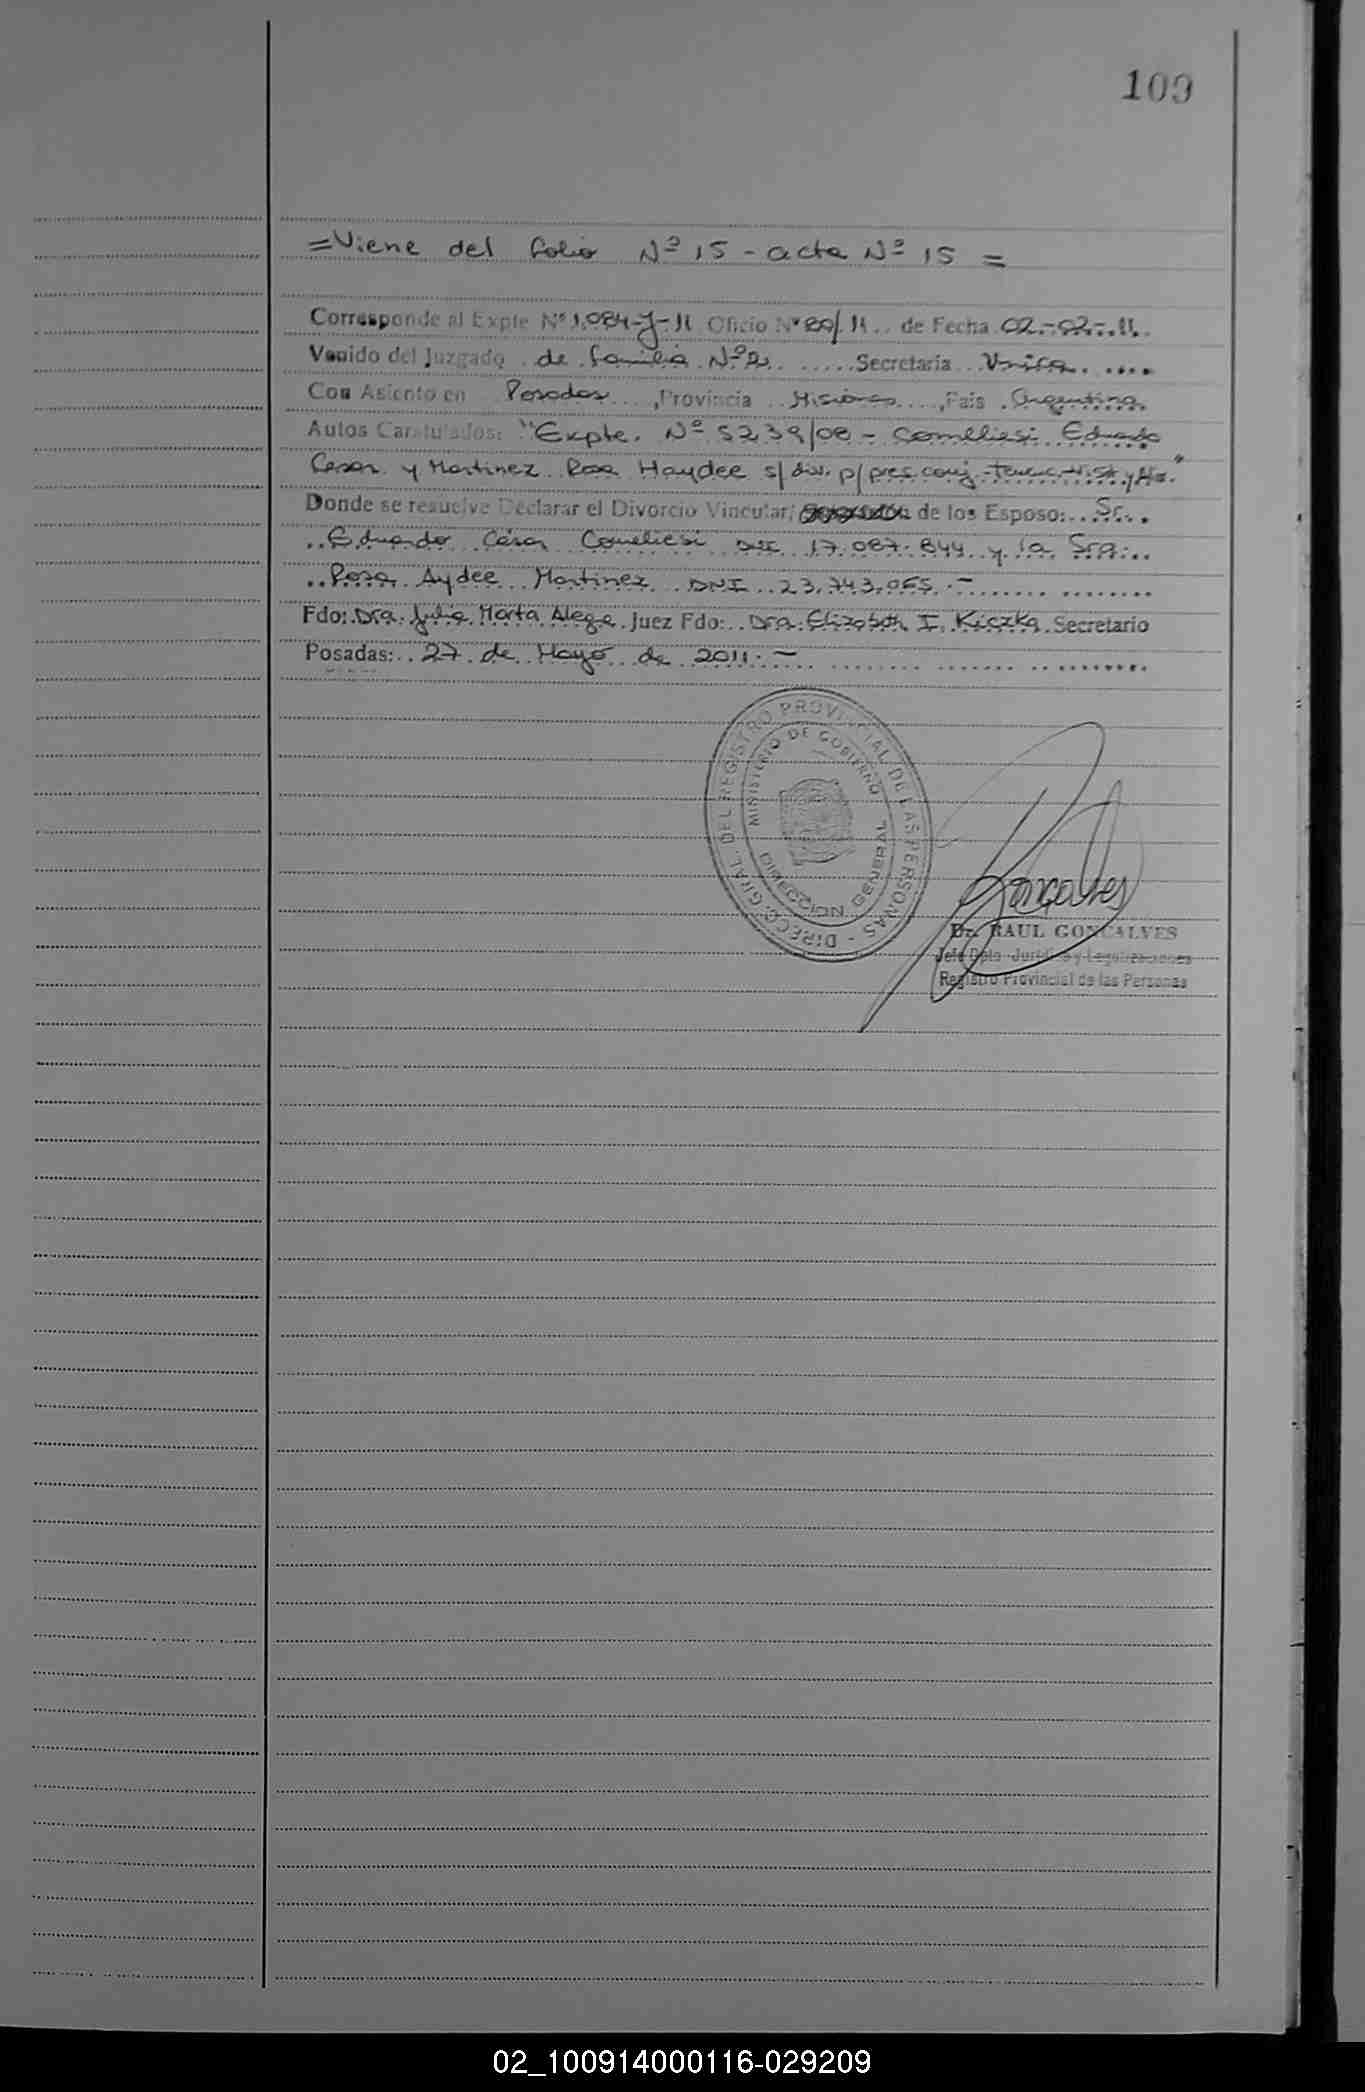 109
=Viene del folio Nº 15 - acta Nº 15 =
Corresponde al Expte Nº 1.084-J-11 Oficio Nº 20/11.. de Fecha 02.-02-.11.
Venido del Juzgado de familia Nº 2. ..... Secretaria Unica. ....
Con Asiento en Posadas ...,Provincia Misiones ...,Pais Argentina.
Autos Caratulados: "Expte. Nº 5239/08 - Eduardo
Cesar y Martinez Rosa Haydee s/ div. p/ pres. conj. tenenc. y
Donde se resuelve Declarar el Divorcio Vincular/ de los Esposo:..Sr...
..Eduardo César DNI 17.087.844 y la Sra...
..Rosa Aydee Martinez DNI 23.743.065.-
Fdo: Dra. Julia Marta Alega Juez Fdo:.. Dra. Elizabeth I. Kiczka Secretario
Posadas:..27 de Mayo de 2011.-
DIRECC. GRAL. DEL REGISTRO PROVINCIAL DE LAS PERSONAS -
MINISTERIO DE GOBIERNO
DIRECCION GENERAL
Goncalves
Dr. RAUL GONCALVES
Jefe Dpto. Jurídico y Legalizaciones
Registro Provincial de las Personas
02_100914000116-029209